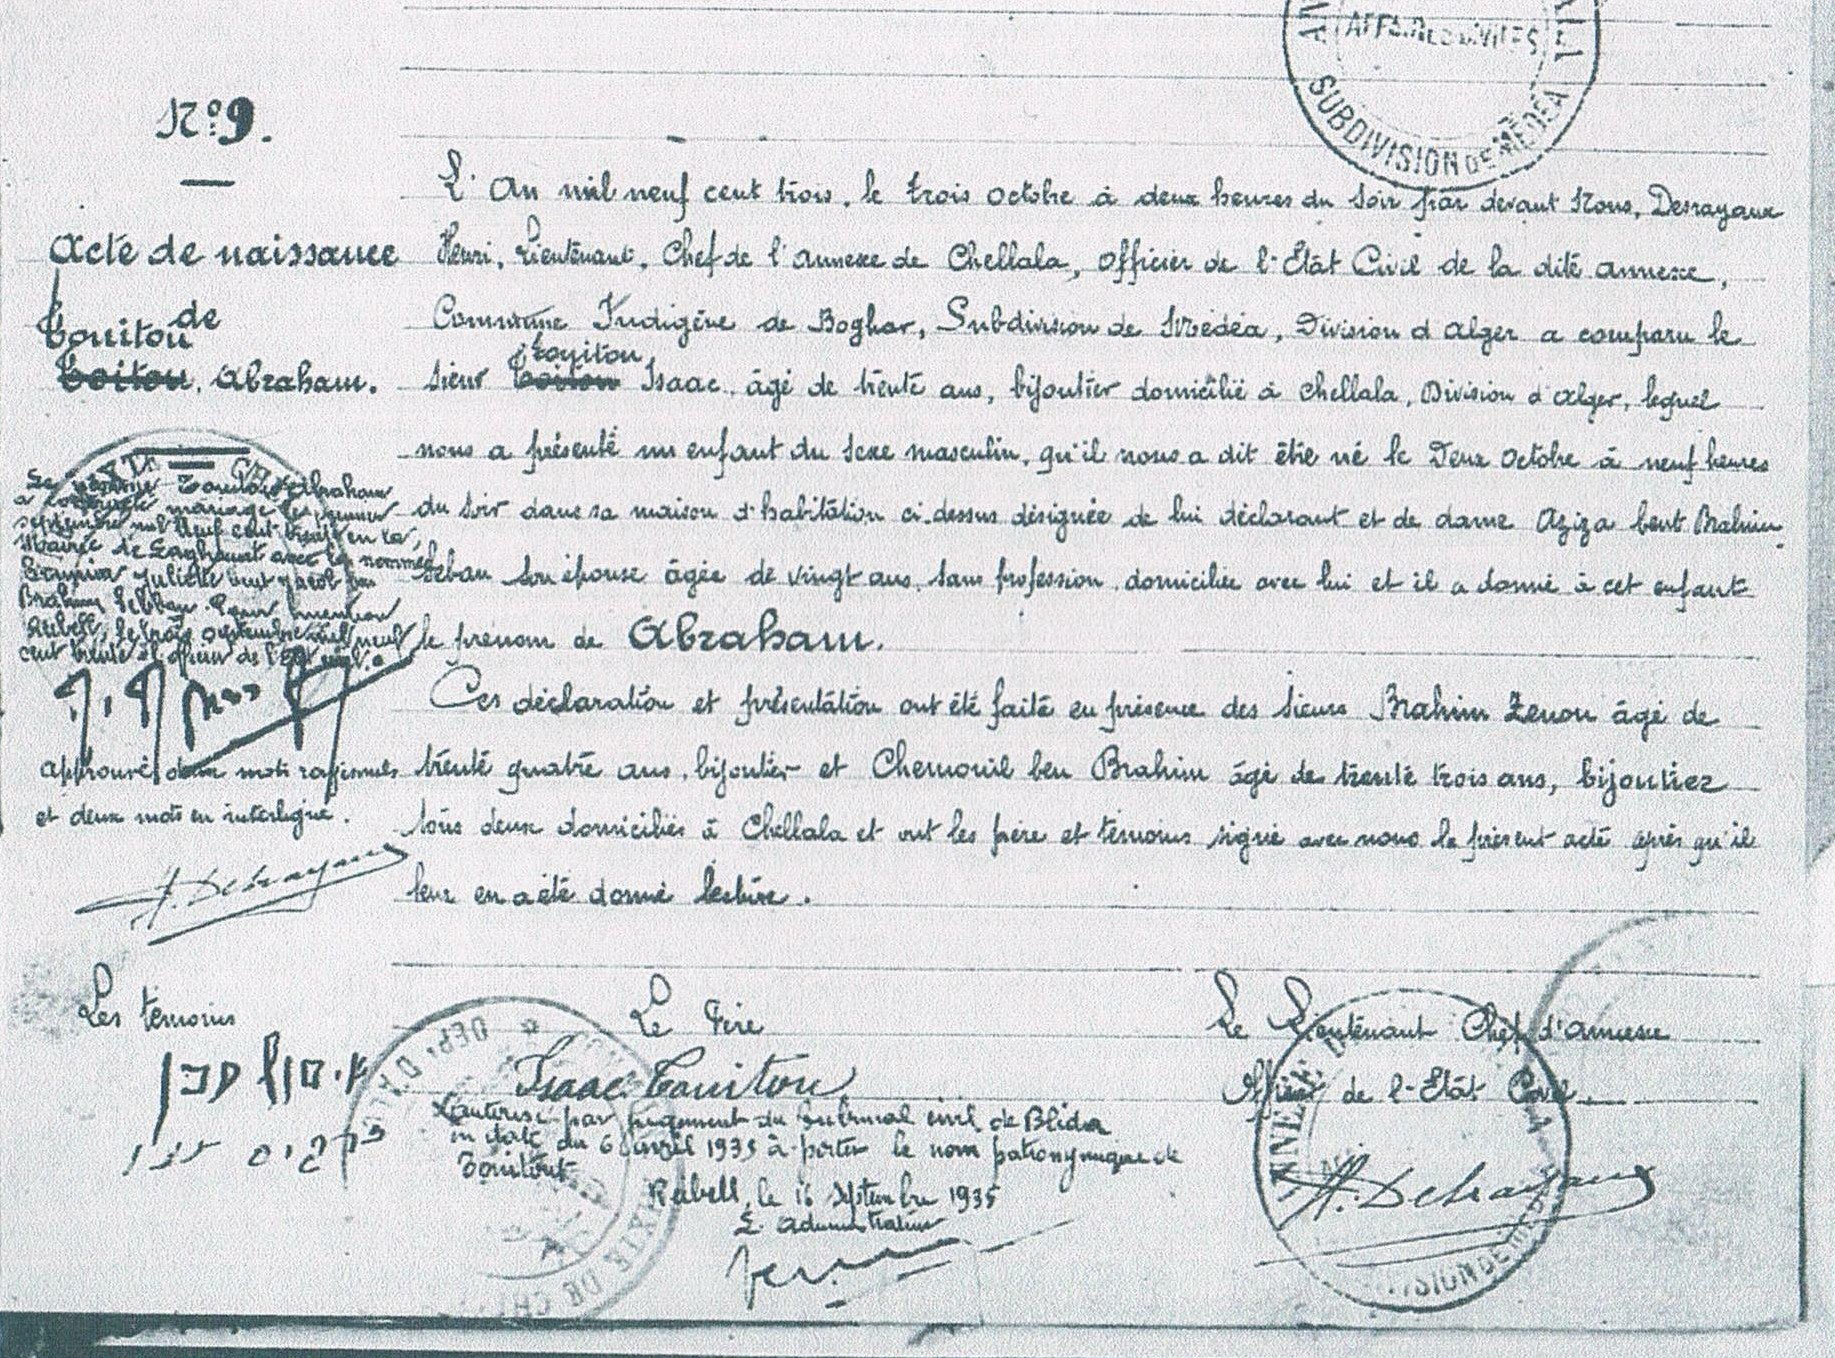 AFFAIRES CIVILES
SUBDIVISION DE MÉDÉA
N° 9.
Acte de naissance
de
Touitou
Toitou, Abraham.
L'An mil neuf cent trois, le trois octobre à deux heures du soir par devant Nous, Desrayaux
Henri, Lieutenant, Chef de l'annexe de Chellala, officier de l'Etat Civil de la dite annexe,
Commune Indigène de Boghar, Subdivision de Médéa, Division d'Alger a comparu le
Touitou
sieur Toitou Isaac, âgé de trente ans, bijoutier domicilié à Chellala, Division d'Alger, lequel
nous a présenté un enfant du sexe masculin, qu'il nous a dit être né le Deux octobre à neuf heures
du soir dans sa maison d'habitation ci-dessus désignée de lui déclarant et de dame Aziza bent Brahim
Sebban son épouse âgée de vingt ans, sans profession, domiciliée avec lui et il a donné à cet enfant
le prénom de Abraham.
Ces déclaration et présentation ont été faite en présence des sieurs Brahim Zenou âgé de
trente quatre ans, bijoutier et Chemouil ben Brahim âgé de trente trois ans, bijoutier
tous deux domiciliés à Chellala et ont les père et témoins signé avec nous le présent acte après qu'il
leur en a été donné lecture.
Le nommé Touitou Abraham
a contracté mariage le premier
septembre mil neuf cent trente en la
Mairie de Laghouat avec la nommée
Juliette bent Jacob ben
Brahim Sebban. Pour mention
Reibell, le trois septembre mil neuf
cent trente l'officier de l'Etat civil.
approuvé deux mots rayés nuls
et deux mots en interligne.
H. Desrayaux
Les témoins
Le Père
Le Lieutenant Chef d'annexe
Officier de l'Etat Civil.
Isaac Touitou
autorisé par jugement du tribunal civil de Blida
en date du 6 avril 1935 à porter le nom patronymique de
Touitou
Reibell, le 16 septembre 1935
L'administrateur
H. Desrayaux